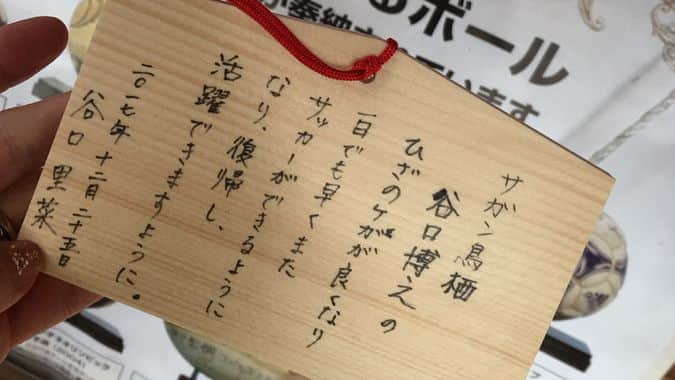 るボール
が奉納されています
サガン鳥栖
谷口博之の
ひざのケガが良くなり
一日でも早くまた
サッカーができるように
なり、復帰し、
活躍できますように。
二〇一七年 十二月二十五日
谷口里菜